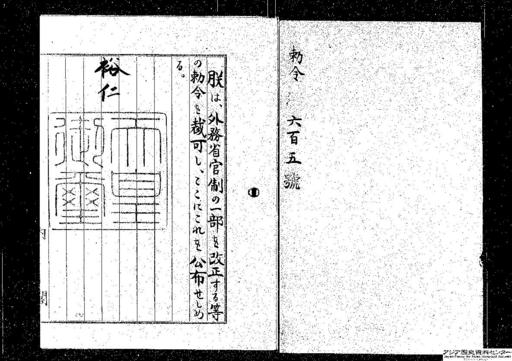 勅令
六百五號
朕は、外務省官制の一部を改正する等
の勅令を裁可し、ここにこれを公布せしめ
る。
裕仁
天皇
御璽
内
閣
アジア歴史資料センター